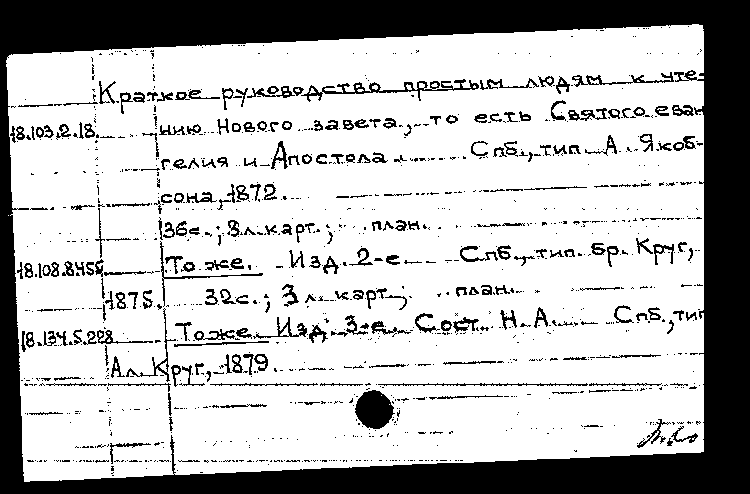 Краткое руководство простым людям к чте-
18.103.2.18. нию Нового завета, то есть Святого еван
гелия и Апостола. Спб., тип. А. Якоб-
сона, 1872.
36с.; 3 л. карт.; план.
18.108.8.455 То же. Изд. 2-е. Спб., тип. бр. Круг,
1875. 32с.; 3 л. карт.; план.
18.134.5.228 То же. Изд. 3-е. Сост. Н.А. Спб., тип
Ал. Круг, 1879.